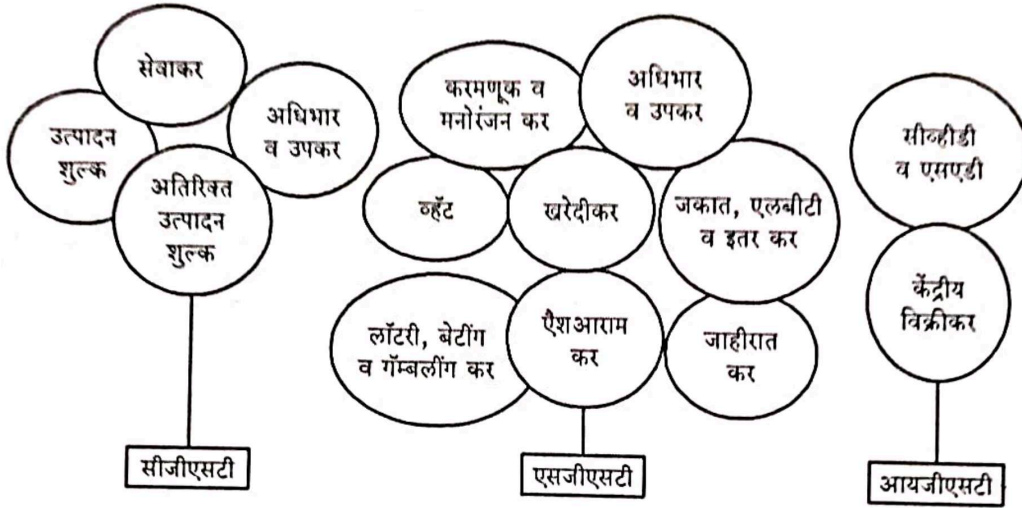 सेवाकर
उत्पादन
शुल्क
अधिभार
व उपकर
अतिरिक्त
उत्पादन
शुल्क
सीजीएसटी
करमणूक व
मनोरंजन कर
अधिभार
व उपकर
व्हॅट
खरेदीकर
जकात, एलबीटी
व इतर कर
लॉटरी, बेटींग
व गॅम्बलींग कर
ऐशआराम
कर
जाहीरात
कर
एसजीएसटी
सीव्हीडी
व एसएडी
केंद्रीय
विक्रीकर
आयजीएसटी